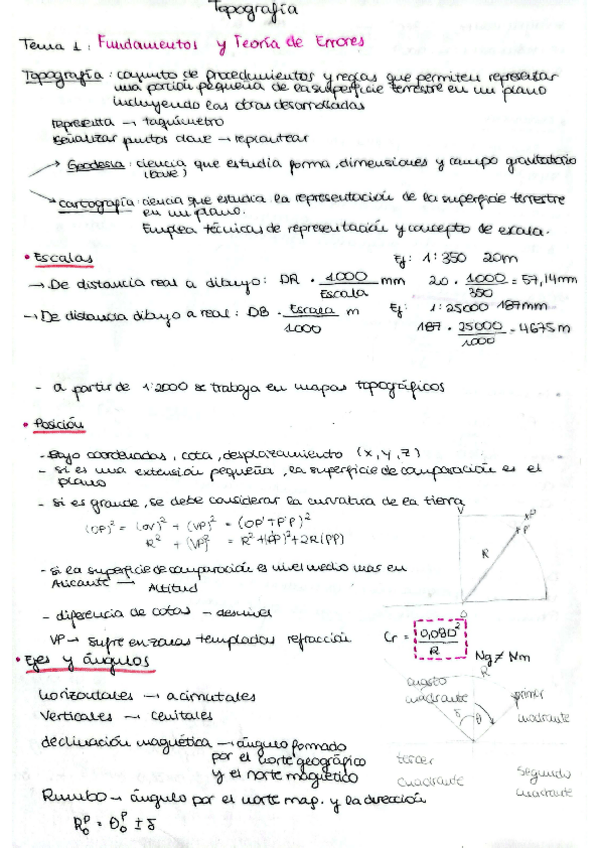 Topografía
Tema 1: Fundamentos y Teoría de Errores
Topografía: conjunto de procedimientos y reglas que permiten representar
una porción pequeña de la superficie terrestre en un plano
incluyendo las obras desarrolladas
representa → taquímetro
señalizar puntos clave → replantear
→ Geodesia: ciencia que estudia forma, dimensiones y campo gravitatorio
(base)
→ Cartografía: ciencia que estudia la representación de la superficie terrestre
en un plano.
Emplea técnicas de representación y concepto de escala.
• Escalas
Ej: 1:350 20m
→ De distancia real a dibujo: DR · 1000/Escala mm 20 · 1000/350 = 57,14mm
→ De distancia dibujo a real: DB · Escala/1000 m Ej: 1:25000 187mm
187 · 25000/1000 = 4675m
- a partir de 1:2000 se trabaja en mapas topográficos
• Posición
- Bajo coordenadas, cota, desplazamiento (x, y, z)
- si es una extensión pequeña, la superficie de comparación es el
plano
- si es grande, se debe considerar la curvatura de la tierra
(OP)² = (OV)² + (VP)² = (OP'+P'P)²
R² + (VP)² = R² + (PP)² + 2R(PP)
V P
P'
R
- si la superficie de comparación es nivel medio mar en
Alicante → Altitud
- diferencia de cotas → desnivel
VP → sufre en zonas templadas refracción Cr = 0,08D²/R
Ng ≠ Nm
• Ejes y ángulos
horizontales → acimutales
Verticales → cenitales
cuarto cuadrante
primer cuadrante
δ θ
declinación magnética → ángulo formado
por el norte geográfico
y el norte magnético
tercer cuadrante
segundo cuadrante
Rumbo → ángulo por el norte mag. y la dirección
R₀ᴾ = θ₀ᴾ ± δ